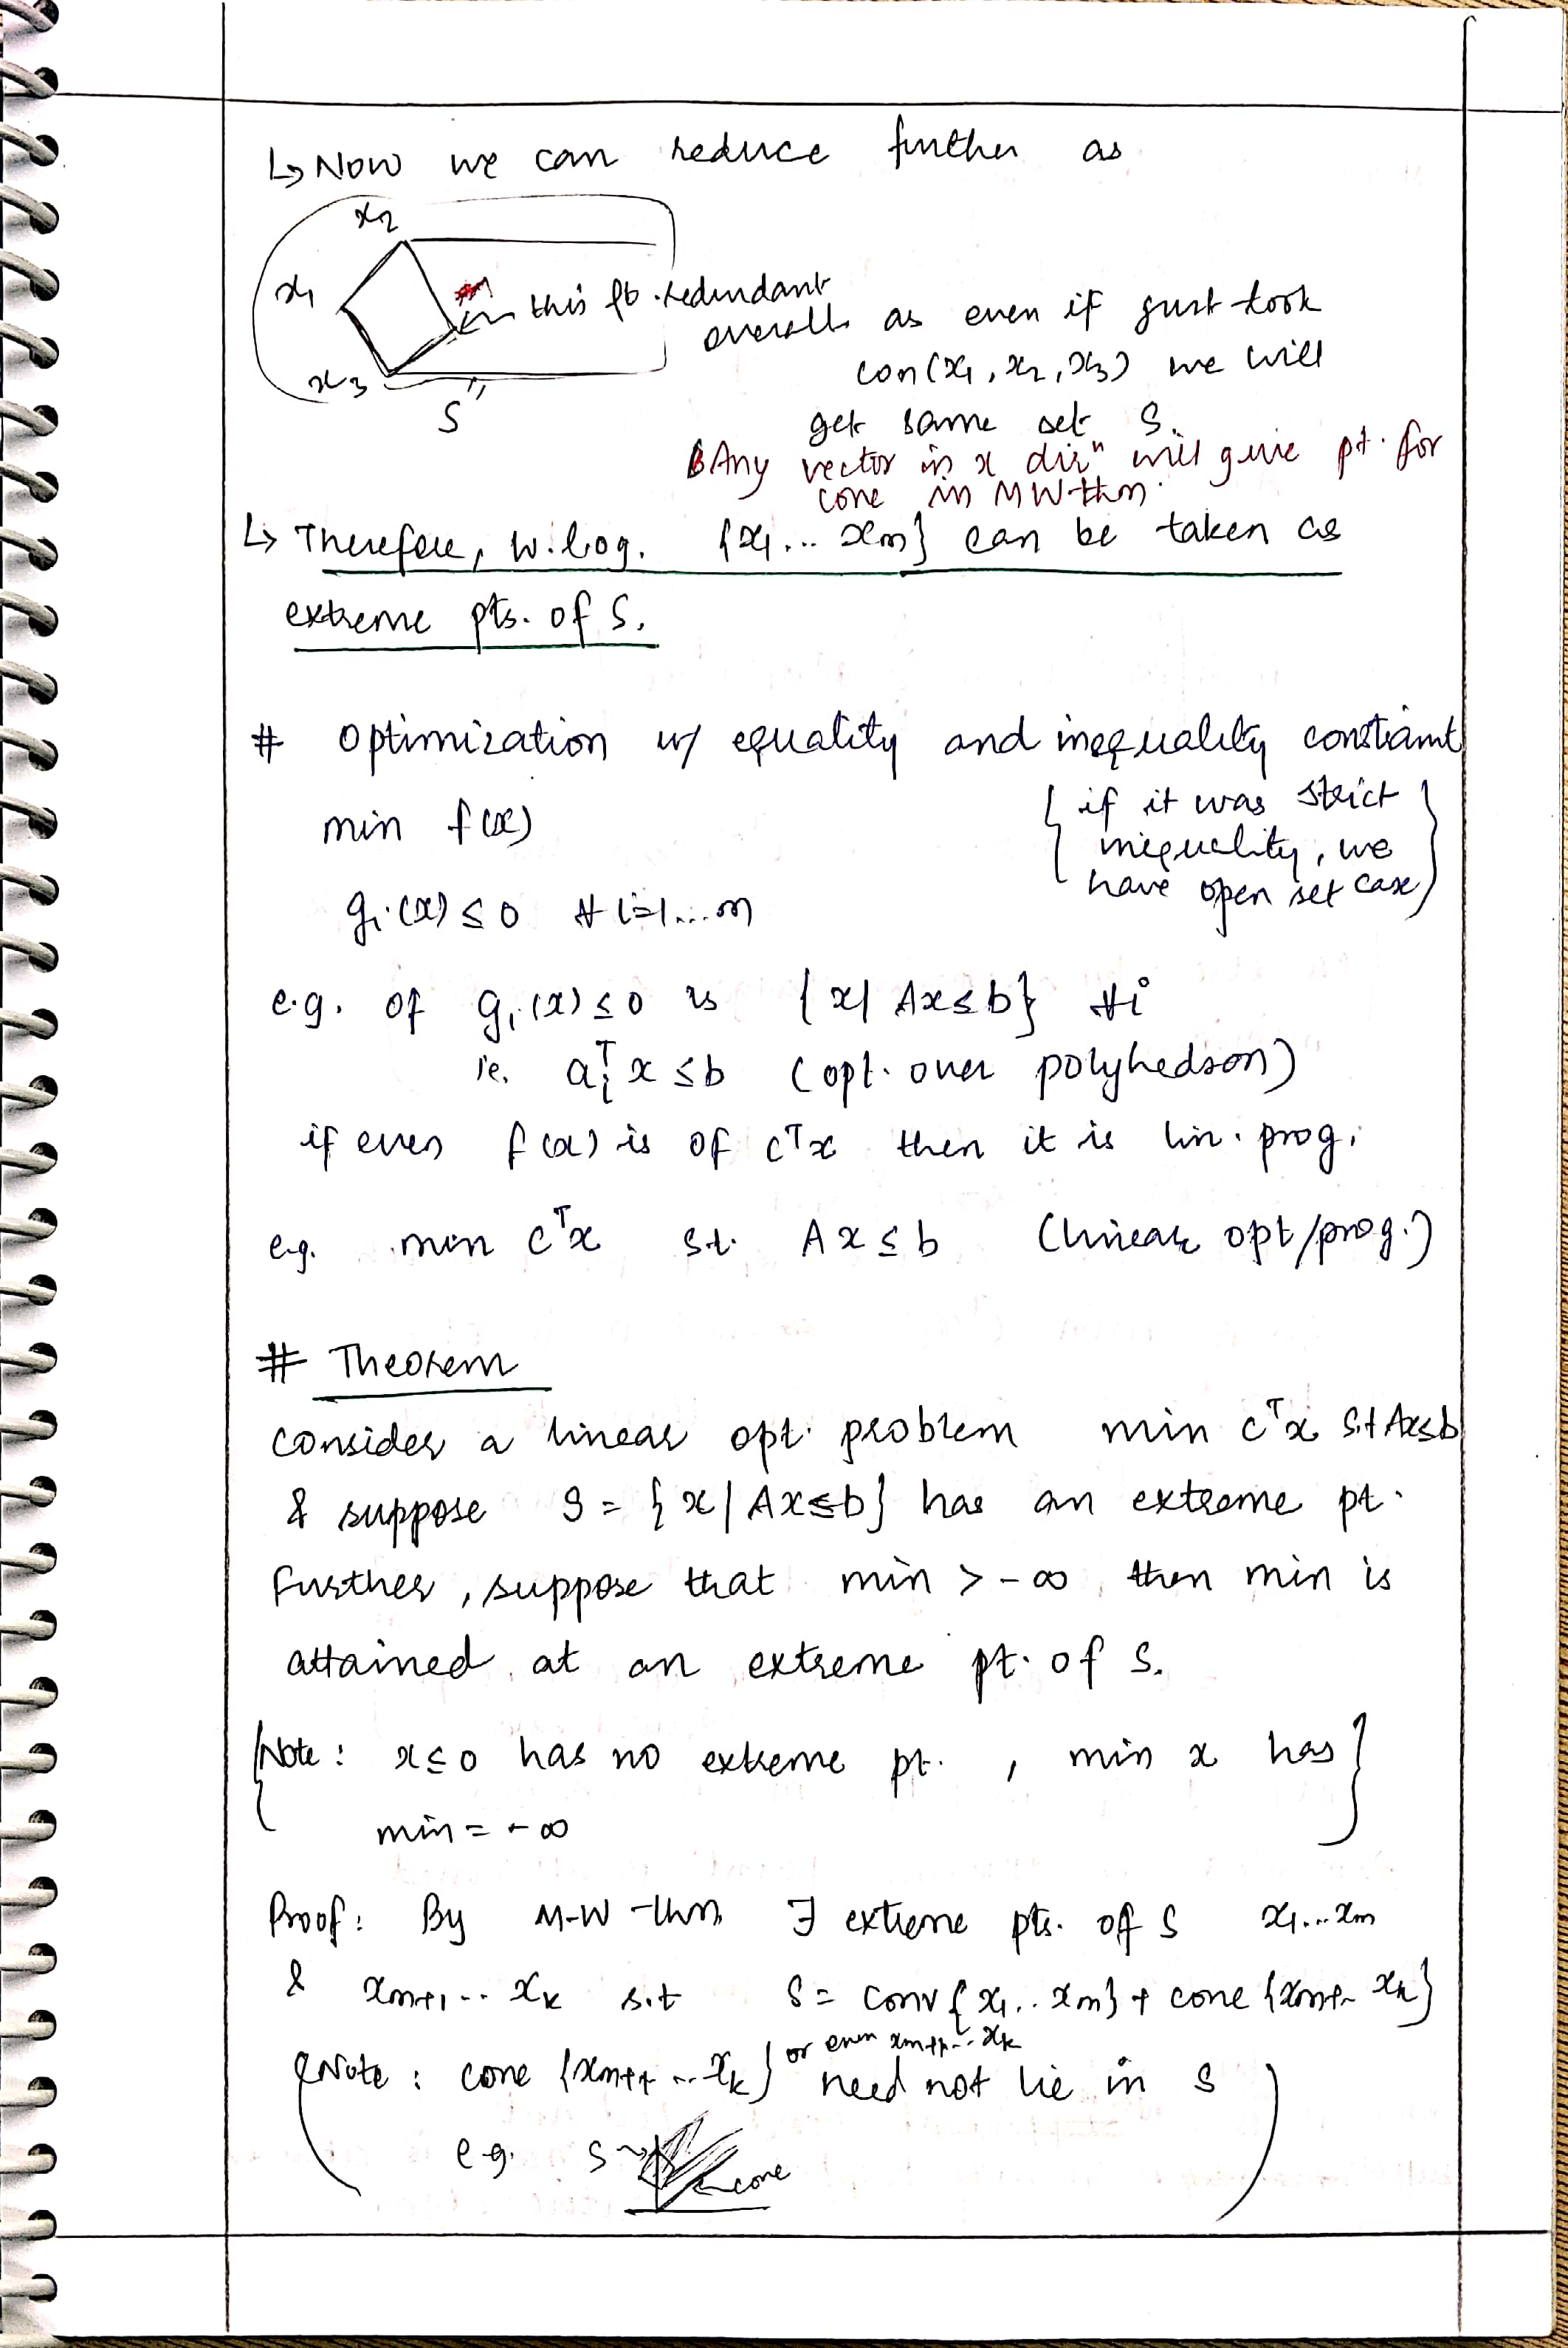 ↳ Now we can reduce further as
x2
x1
this pt. redundant
overall as even if just took
con(x1, x2, x3) we will
x3
S
get same set S.
Any vector in x dirⁿ will give pt. for
cone in MW thm.
↳ Therefore, w.log. {x1... xm} can be taken as
extreme pts. of S.
# Optimization w/ equality and inequality constraint
min f(x)
{if it was strict
inequality, we
have open set case}
gi(x) ≤ 0 ∀ i=1...m
e.g. of gi(x) ≤ 0 is {x| Ax≤b} ∀i
ie. aiᵀx ≤ b (opt. over polyhedron)
if even f(x) is of cᵀx then it is lin. prog.
e.g. min cᵀx s.t. Ax ≤ b (linear opt/prog.)
# Theorem
Consider a linear opt. problem min cᵀx s.t Ax≤b
& suppose S = {x | Ax≤b} has an extreme pt.
Further, suppose that min > -∞, then min is
attained at an extreme pt. of S.
{Note: x≤0 has no extreme pt. , min x has}
min = -∞
Proof: By M-W thm ∃ extreme pts. of S x1...xm
& xm+1... xk s.t S = conv{x1... xm} + cone {xm+1... xk}
or even xm+1... xk
(Note: cone {xm+1 ... xk} need not lie in S)
e.g. S
cone